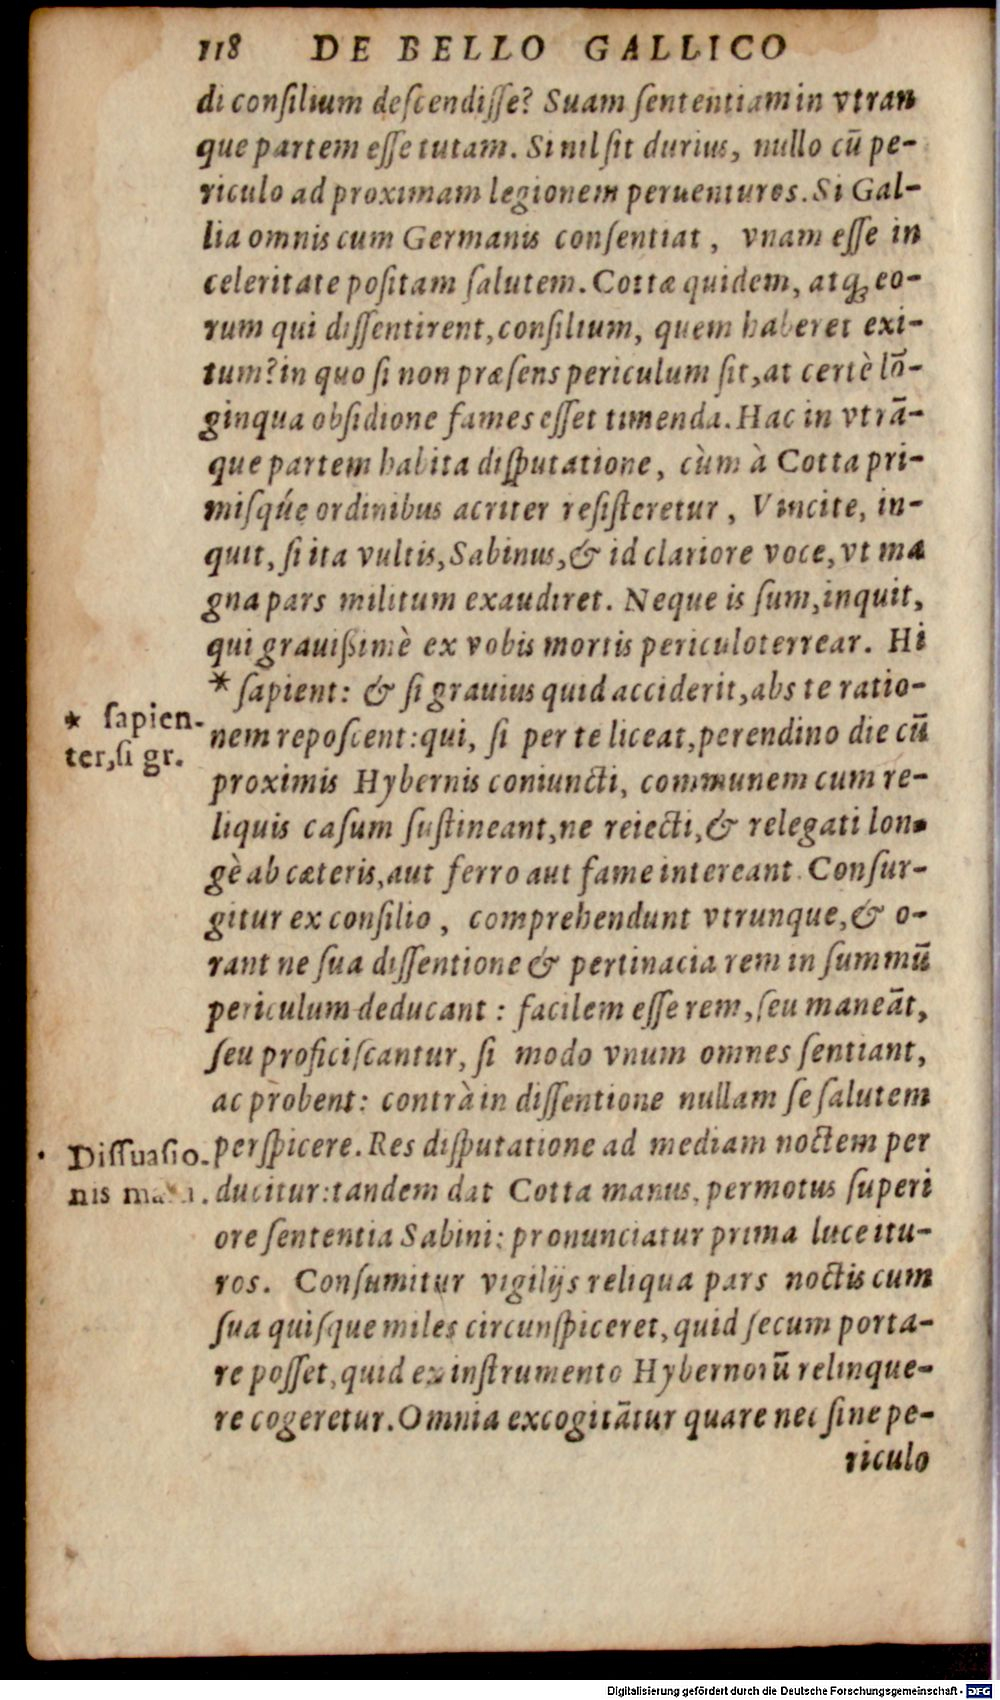 118 DE BELLO GALLICO
di conſilium deſcendiſſe? Suam ſententiam in vtran
que partem eſſe tutam. Si nil ſit durius, nullo cū pe-
riculo ad proximam legionem peruenturos. Si Gal-
lia omnis cum Germanis conſentiat, vnam eſſe in
celeritate poſitam ſalutem. Cottæ quidem, atq; eo-
rum qui diſſentirent, conſilium, quem haberet exi-
tum? in quo ſi non præſens periculum ſit, at certè lō-
ginqua obſidione fames eſſet timenda. Hac in vtrā-
que partem habita diſputatione, cùm à Cotta pri-
miſq́ue ordinibus acriter reſiſteretur, Vincite, in-
quit, ſi ita vultis, Sabinus, & id clariore voce, vt ma
gna pars militum exaudiret. Neque is ſum, inquit,
qui grauißimè ex vobis mortis periculo terrear. Hi
* ſapient: & ſi grauius quid acciderit, abs te ratio-
* ſapien-
ter, ſi gr.
nem repoſcent: qui, ſi per te liceat, perendino die cū
proximis Hybernis coniuncti, communem cum re-
liquis caſum ſuſtineant, ne reiecti, & relegati lon-
gè ab cæteris, aut ferro aut fame intereant. Conſur-
gitur ex conſilio, comprehendunt vtrunque, & o-
rant ne ſua diſſentione & pertinacia rem in ſummū
periculum deducant: facilem eſſe rem, ſeu maneāt,
ſeu proficiſcantur, ſi modo vnum omnes ſentiant,
ac probent: contrà in diſſentione nullam ſe ſalutem
Diſſuaſio-
nis
perſpicere. Res diſputatione ad mediam noctem per
ducitur: tandem dat Cotta manus, permotus ſuperi
ore ſententia Sabini: pronunciatur prima luce itu-
ros. Conſumitur vigilijs reliqua pars noctis cum
ſua quiſque miles circunſpiceret, quid ſecum porta-
re poſſet, quid ex inſtrumento Hybernorū relinque-
re cogeretur. Omnia excogitātur quare nec ſine pe-
riculo
Digitalisierung gefördert durch die Deutsche Forschungsgemeinschaft - DFG